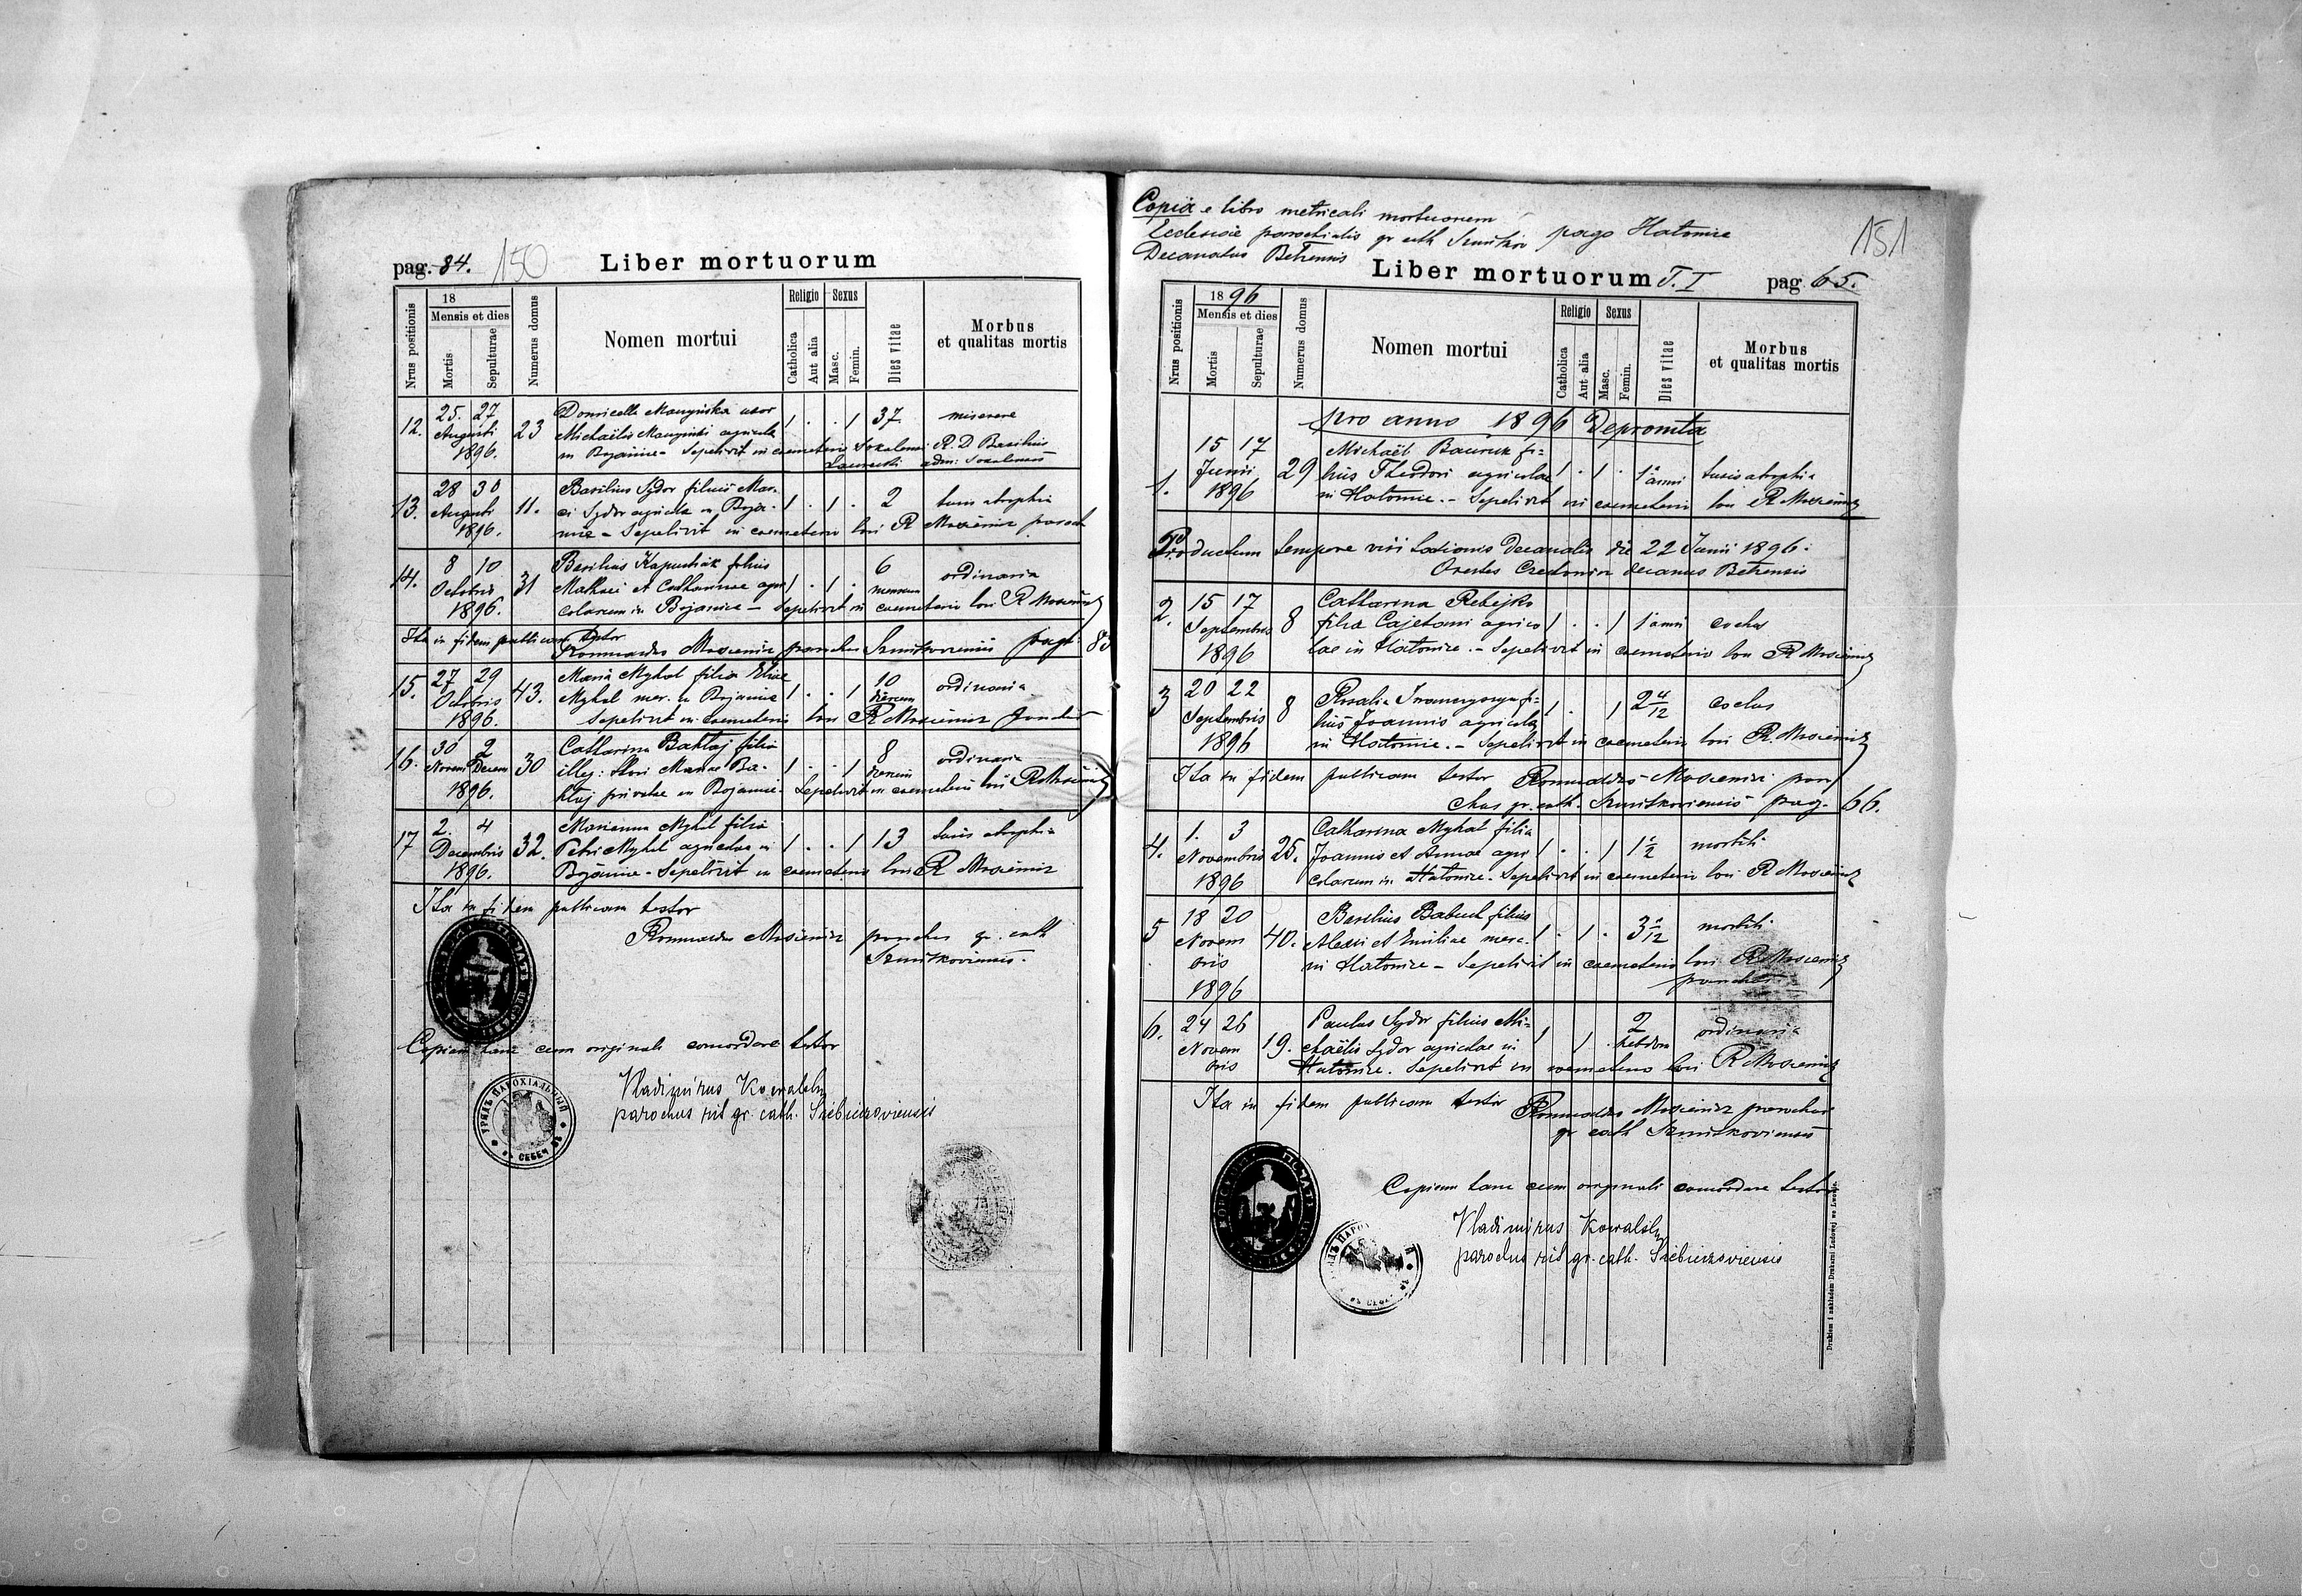 pag. 84.
150
Liber mortuorum
Nrus positionis
18
Mensis et dies
Mortis
Sepulturae
Numerus domus
Nomen mortui
Religio
Catholica
Aut alia
Sexus
Masc.
Femin.
Dies vitae
Morbus
et qualitas mortis
12. 25. 27 Augusti 1896. 23
uxor 1 . . 1 37. miserere
Michaëlis agricolae
in Bojanice - Sepelivit in coemeterio R. D. Basilius
13. 28 30 Augusti 1896. 11.
Basilius Sydor filius Mat-
ei Sydor agricolae in Boja- 1 . 1 . 2 tussis atrophia
nice - Sepelivit in coemeterio loci R Mosiewicz paroch
14. 8 10 Octobris 1896. 31
Basilius Kapustiak filius
Mathaei et Catharinae agri 1 . 1 . 6 mensium ordinaria
colarum in Bojanice - Sepelivit in coemeterio loci R Mosiewicz
Ita in fidem publicam testor
Romualdus Mosiewicz parochus Szmitkoviensis pag. 85
15. 27 29 Octobris 1896. 43.
Maria Myhal filia Eliae
Myhal mer. in Bojanice 1 . . 1 10 dierum ordinaria
Sepelivit in coemeterio loci R Mosiewicz parochus
16. 30 2 Novem Decem 1896. 30
Catharina Baktaj filia
illeg: thori Mariae Ba- 1 . . 1 8 dierum ordinaria
ktaj privatae in Bojanice. Sepelivit in coemeterio loci R Mosiewicz
17 2. 4 Decembris 1896. 32.
Marianna Myhal filia
Petri Myhal agricolae in 1 . . 1 13 tussis atrophia
Bojanice - Sepelivit in coemeterio loci R Mosiewicz
Ita in fidem publicam testor
Romualdus Mosiewicz parochus gr. cath
Szmitkoviensis.
Copiam hanc cum originali concordare testor
Vladimirus Kowalsky
parochus rit gr. cath. Siebieczoviensis
УРЯДЪ ПАРОХІАЛЬНЫЙ
Copia e libro metricali mortuorum
Ecclesiae parochialis gr cath Szmitkow pago Hatowice
Decanatus Belzensis
151
Liber mortuorum T. I
pag 65.
Nrus positionis
18 96
Mensis et dies
Mortis
Sepulturae
Numerus domus
Nomen mortui
Religio
Catholica
Aut alia
Sexus
Masc.
Femin.
Dies vitae
Morbus
et qualitas mortis
pro anno 1896 Depromta
1. 15 17 Junii 1896 29
Michaël fi=
lius Theodori agricolae 1 . 1 . 1 anni tussis atrophia
in Hatowice. - Sepelivit in coemeterio loci R Mosiewicz
Productum tempore visitationis decanalis die 22 Junii 1896.
Orestes decanus Belzensis
2. 15 17 Septembris 1896 8
Catharina Rebejko
filia Cajetani agrico 1 . . 1 1 anni
lae in Hatowice. - Sepelivit in coemeterio loci R Mosiewicz
3 20 22 Septembris 1896 8
Rosalia fi-
lius Joannis agricolae 1 . 1 2 4/12
in Hatowice. - Sepelivit in coemeterio loci R. Mosiewicz
Ita in fidem publicam testor Romualdus Mosiewicz paro
chus gr. cath. Szmitkoviensis pag. 66.
4. 1. 3 Novembris 1896 25.
Catharina Myhal filia
Joannis et Annae agri 1 . . 1 1 1/2 morbili
colarum in Hatowice. Sepelivit in coemeterio loci R Mosiewicz
5 18 20 Novem bris 1896 40.
Basilius Babuch filius
Alexii et Emiliae merc. 1 . 1 . 3 1/12 morbili
in Hatowice - Sepelivit in coemeterio loci R Mosiewicz
parochus
6. 24 26 Novem bris 19.
Paulus Sydor filius Mi=
chaëlis Sydor agricolae in 1 1 . 2 hebdom ordinaria
Hatowice. Sepelivit in coemeterio loci R Mosiewicz
Ita in fidem publicam testor Romualdus Mosiewicz parochus
gr cath Szmitkoviensis
Copiam hanc cum originali concordare testor
Vladimirus Kowalsky
parochus rit gr. cath. Siebieczoviensis
Drukiem i nakładem Drukarni Ludowej we Lwowie.